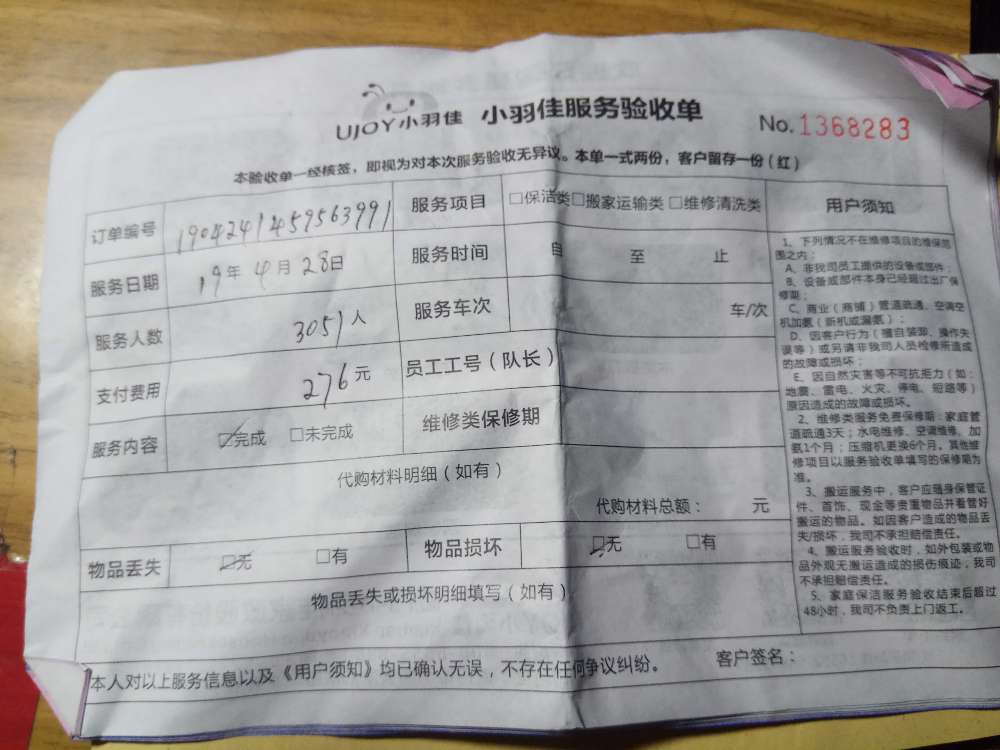 UJOY小羽佳 小羽佳服务验收单 No.1368283
本验收单一经核签，即视为对本次服务验收无异议。本单一式两份，客户留存一份（红）
订单编号 1904241459563991 服务项目 □保洁类□搬家运输类 □维修清洗类
服务日期 19年4月28日 服务时间 自 至 止
服务人数 3051人 服务车次 车/次
支付费用 276元 员工工号（队长）
服务内容 ☑完成 □未完成 维修类保修期
代购材料明细（如有）
代购材料总额： 元
物品丢失 ☑无 □有 物品损坏 ☑无 □有
物品丢失或损坏明细填写（如有）
本人对以上服务信息以及《用户须知》均已确认无误，不存在任何争议纠纷。 客户签名：
用户须知
1、下列情况不在维修项目的维保范
围之内：
A、非我司员工提供的设备或部件；
B、设备或部件本身已经超过出厂保
修期；
C、商业（商铺）管道疏通、空调空
机加氨（新机或漏氨）；
D、因客户行为（擅自装卸、操作失
误等）或另请非我司人员检修所造成
的故障或损坏；
E、因自然灾害等不可抗拒力（如：
地震、雷电、火灾、停电、短路等）
原因造成的故障或损坏。
2、维修类服务免费保修期：家庭管
道疏通3天；水电维修、空调维修、加
氨1个月；压缩机更换6个月，其他维
修项目以服务验收单填写的保修期为
准。
3、搬运服务中，客户应随身保管证
件、首饰、现金等贵重物品并看管好
搬运的物品。如因客户造成的物品丢
失/损坏，我司不承担赔偿责任。
4、搬运服务验收时，如外包装或物
品外观无搬运造成的损伤痕迹，我司
不承担赔偿责任。
5、家庭保洁服务验收结束后超过
48小时，我司不负责上门返工。